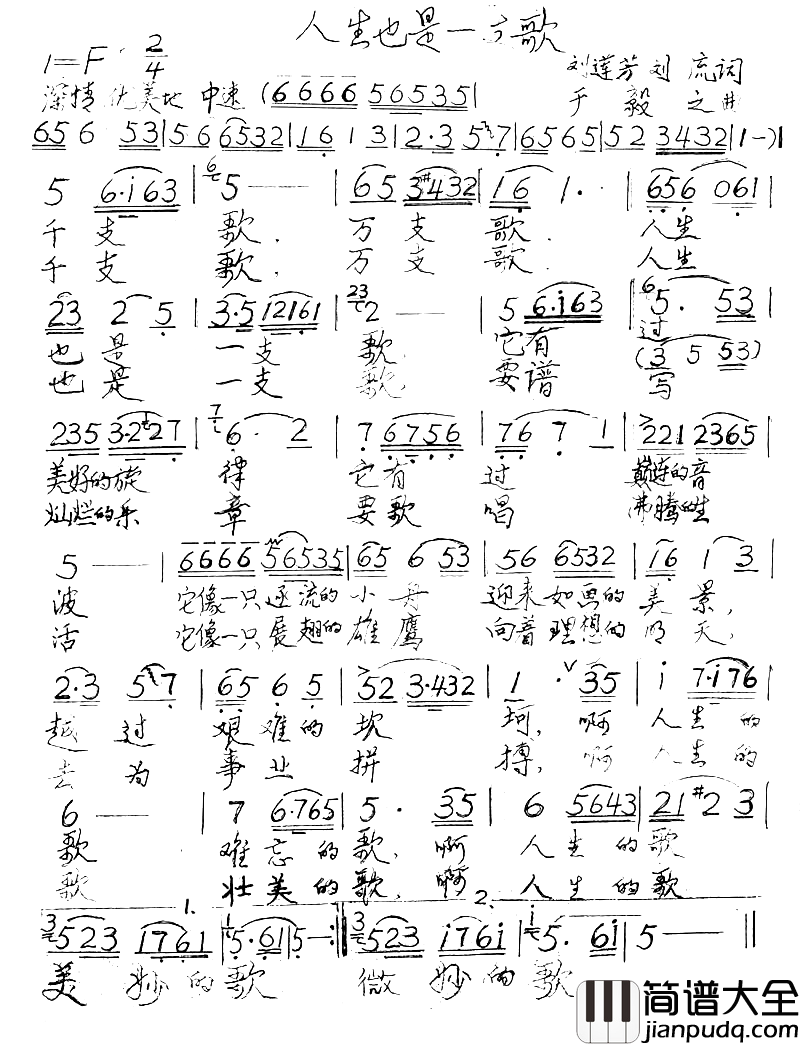 人生也是一支歌
1=F 2/4 刘莲芳 刘流词
深情 优美地 中速 (6666 56535| 于毅之曲
656 53|56 6532|16 13|2·3 5 7|6565|52 3432|1—)|
5 6·i63|5——|65 3#432|16 1·|656 061|
千支 歌. 万支 歌. 人生
千支 歌. 万支 歌. 人生
23 2 5|3·5 12161|2——|5 6·i63|5· 53|
也是 一支 歌. 它有 过
(3 5 53)
也是 一支 歌. 要谱 写
235 3·227|6· 2|7 6756|76 7 1|221 2365|
美好的旋 律 它有 过 颠连的音
灿烂的乐 章 要歌 唱 沸腾的生
5——|6666 56535|65 6 53|56 6532|16 1 3|
波 它像一只逐流的小舟 迎来如画的美景,
活 它像一只展翅的雄鹰 向着理想的明天,
2·3 5 7|65 6 5|52 3·432|1· 35|i 7·i76|
越过 艰难的 坎 坷, 啊 人生的
去为 事业 拼 搏, 啊 人生的
6——|7 6·765|5· 35|6 5643|21 #2 3|
歌 难忘的歌, 啊 人生的歌
歌 壮美的歌, 啊 人生的歌
1. 2.
523 1761|5·61|5—:||523 i76i|5· 6i|5——||
美妙的歌 微妙的歌
简谱大全
jianpudq.com